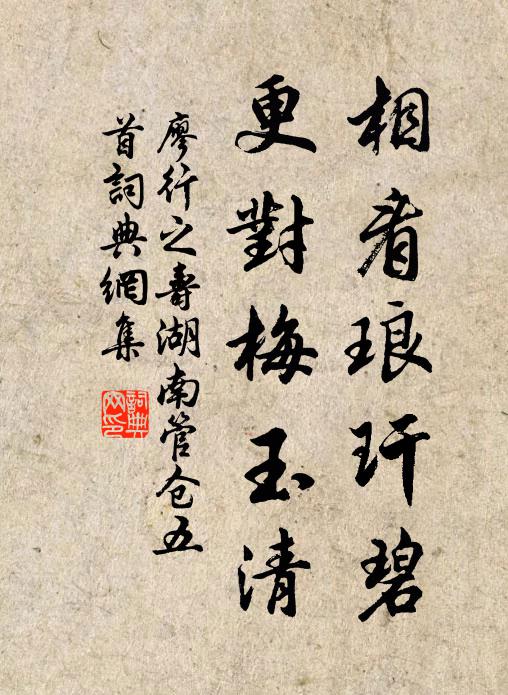 相看琅玕碧
更對梅玉清
廖行之壽湖南管仓五
首詞典網集
詞典
网印